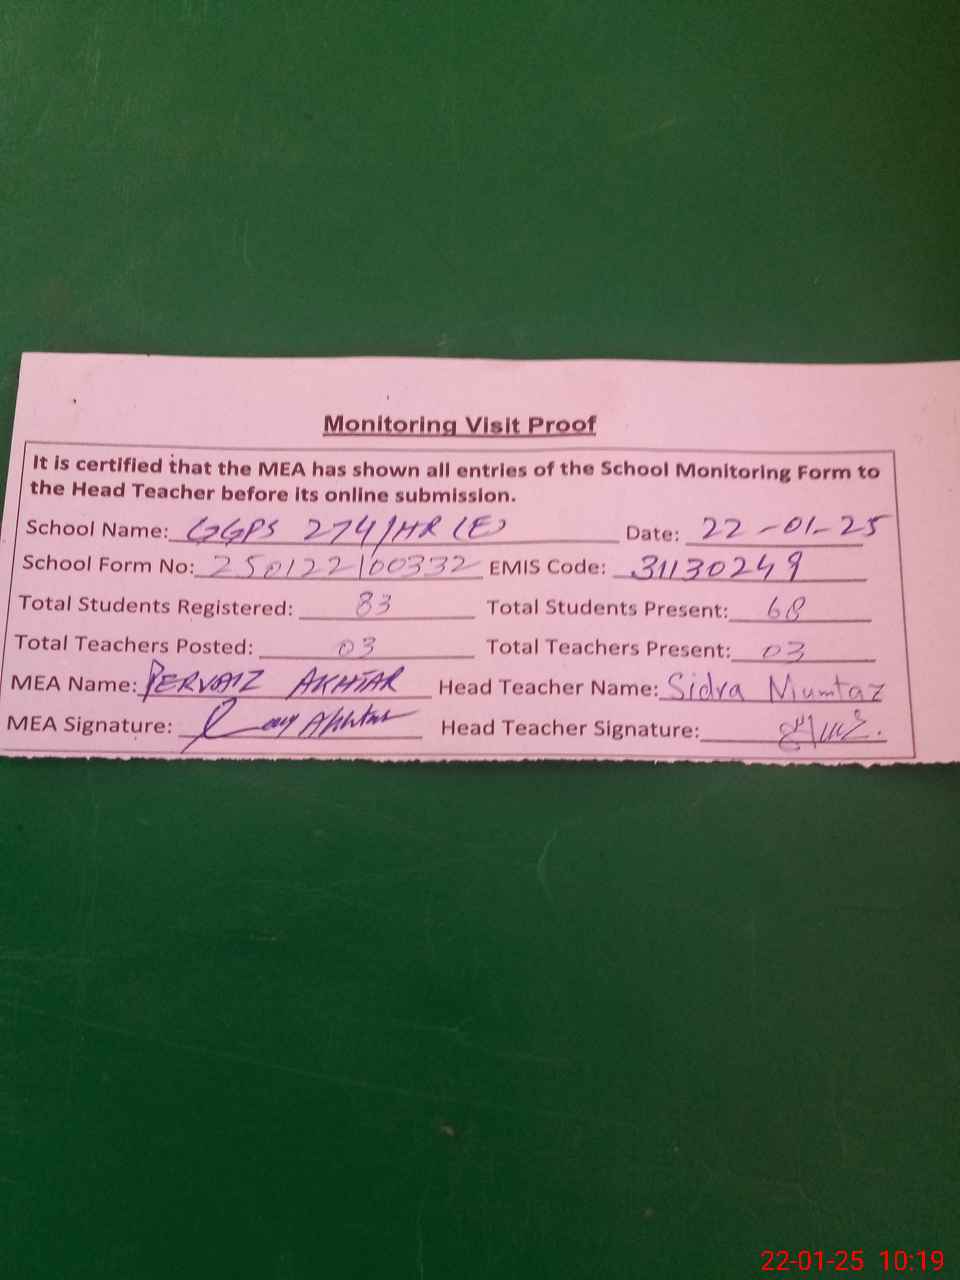 Monitoring Visit Proof
It is certified that the MEA has shown all entries of the School Monitoring Form to
the Head Teacher before its online submission.
School Name: GGPS 274/HR (E) Date: 22-01-25
School Form No: 250122100332 EMIS Code: 31130249
Total Students Registered: 83 Total Students Present: 68
Total Teachers Posted: 03 Total Teachers Present: 03
MEA Name: PERVAIZ AKHTAR Head Teacher Name: Sidra Mumtaz
MEA Signature: Akhtar Head Teacher Signature:
22-01-25 10:19